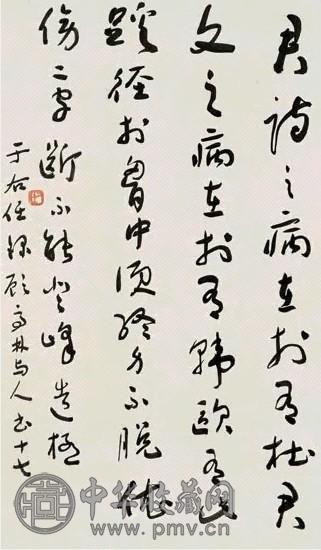 君詩之病在於有杜君
文之病在於有韓歐有此
蹊徑於胸中便終身不脫依
傍二字斷不能登峰造極
于右任錄顧亭林與人書十七
中华收藏网
www.pmv.cn